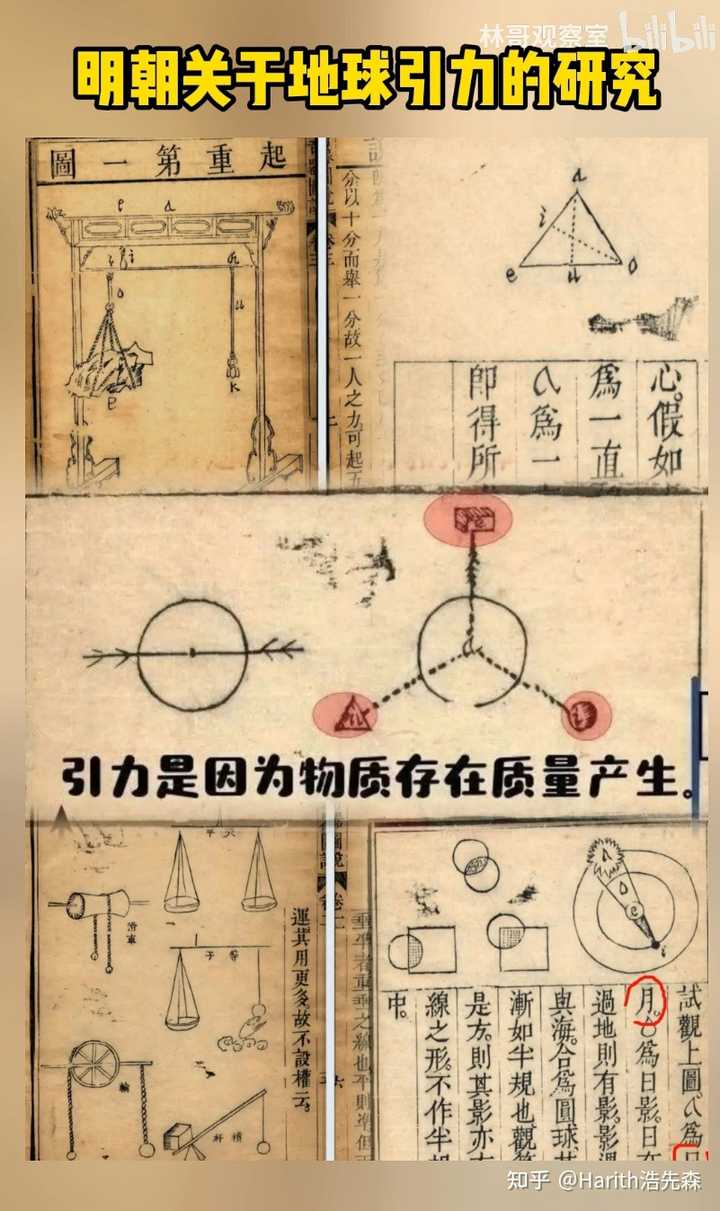 林哥观察室 bilibili
明朝关于地球引力的研究
起重第一圖
分以十分而舉一分故一人之力可起五
a
i
e u o
心。假如
爲一直
八爲一
即得所
引力是因为物质存在质量产生。
滑車
等子
輪
槓杆
運其用更多故不設權云。
重準者重垂之線也不則準但
試觀上圖八爲日
月。合爲日影。日在
過地則有影。影
與海。合爲圓球。其
漸如半規也觀
是方。則其影亦
線之形。不作半規
中。
知乎 @Harith浩先森